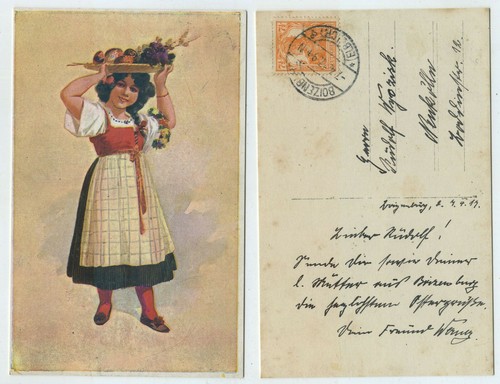 BOIZENBURG
Herrn
Rudolf
Neukölln
Boizenburg, d. 4.4.19.
Lieber Rudolf!
Sende Dir sowie Deiner
l. Mutter aus Boizenburg
die herzlichsten Ostergrüße.
Dein Freund